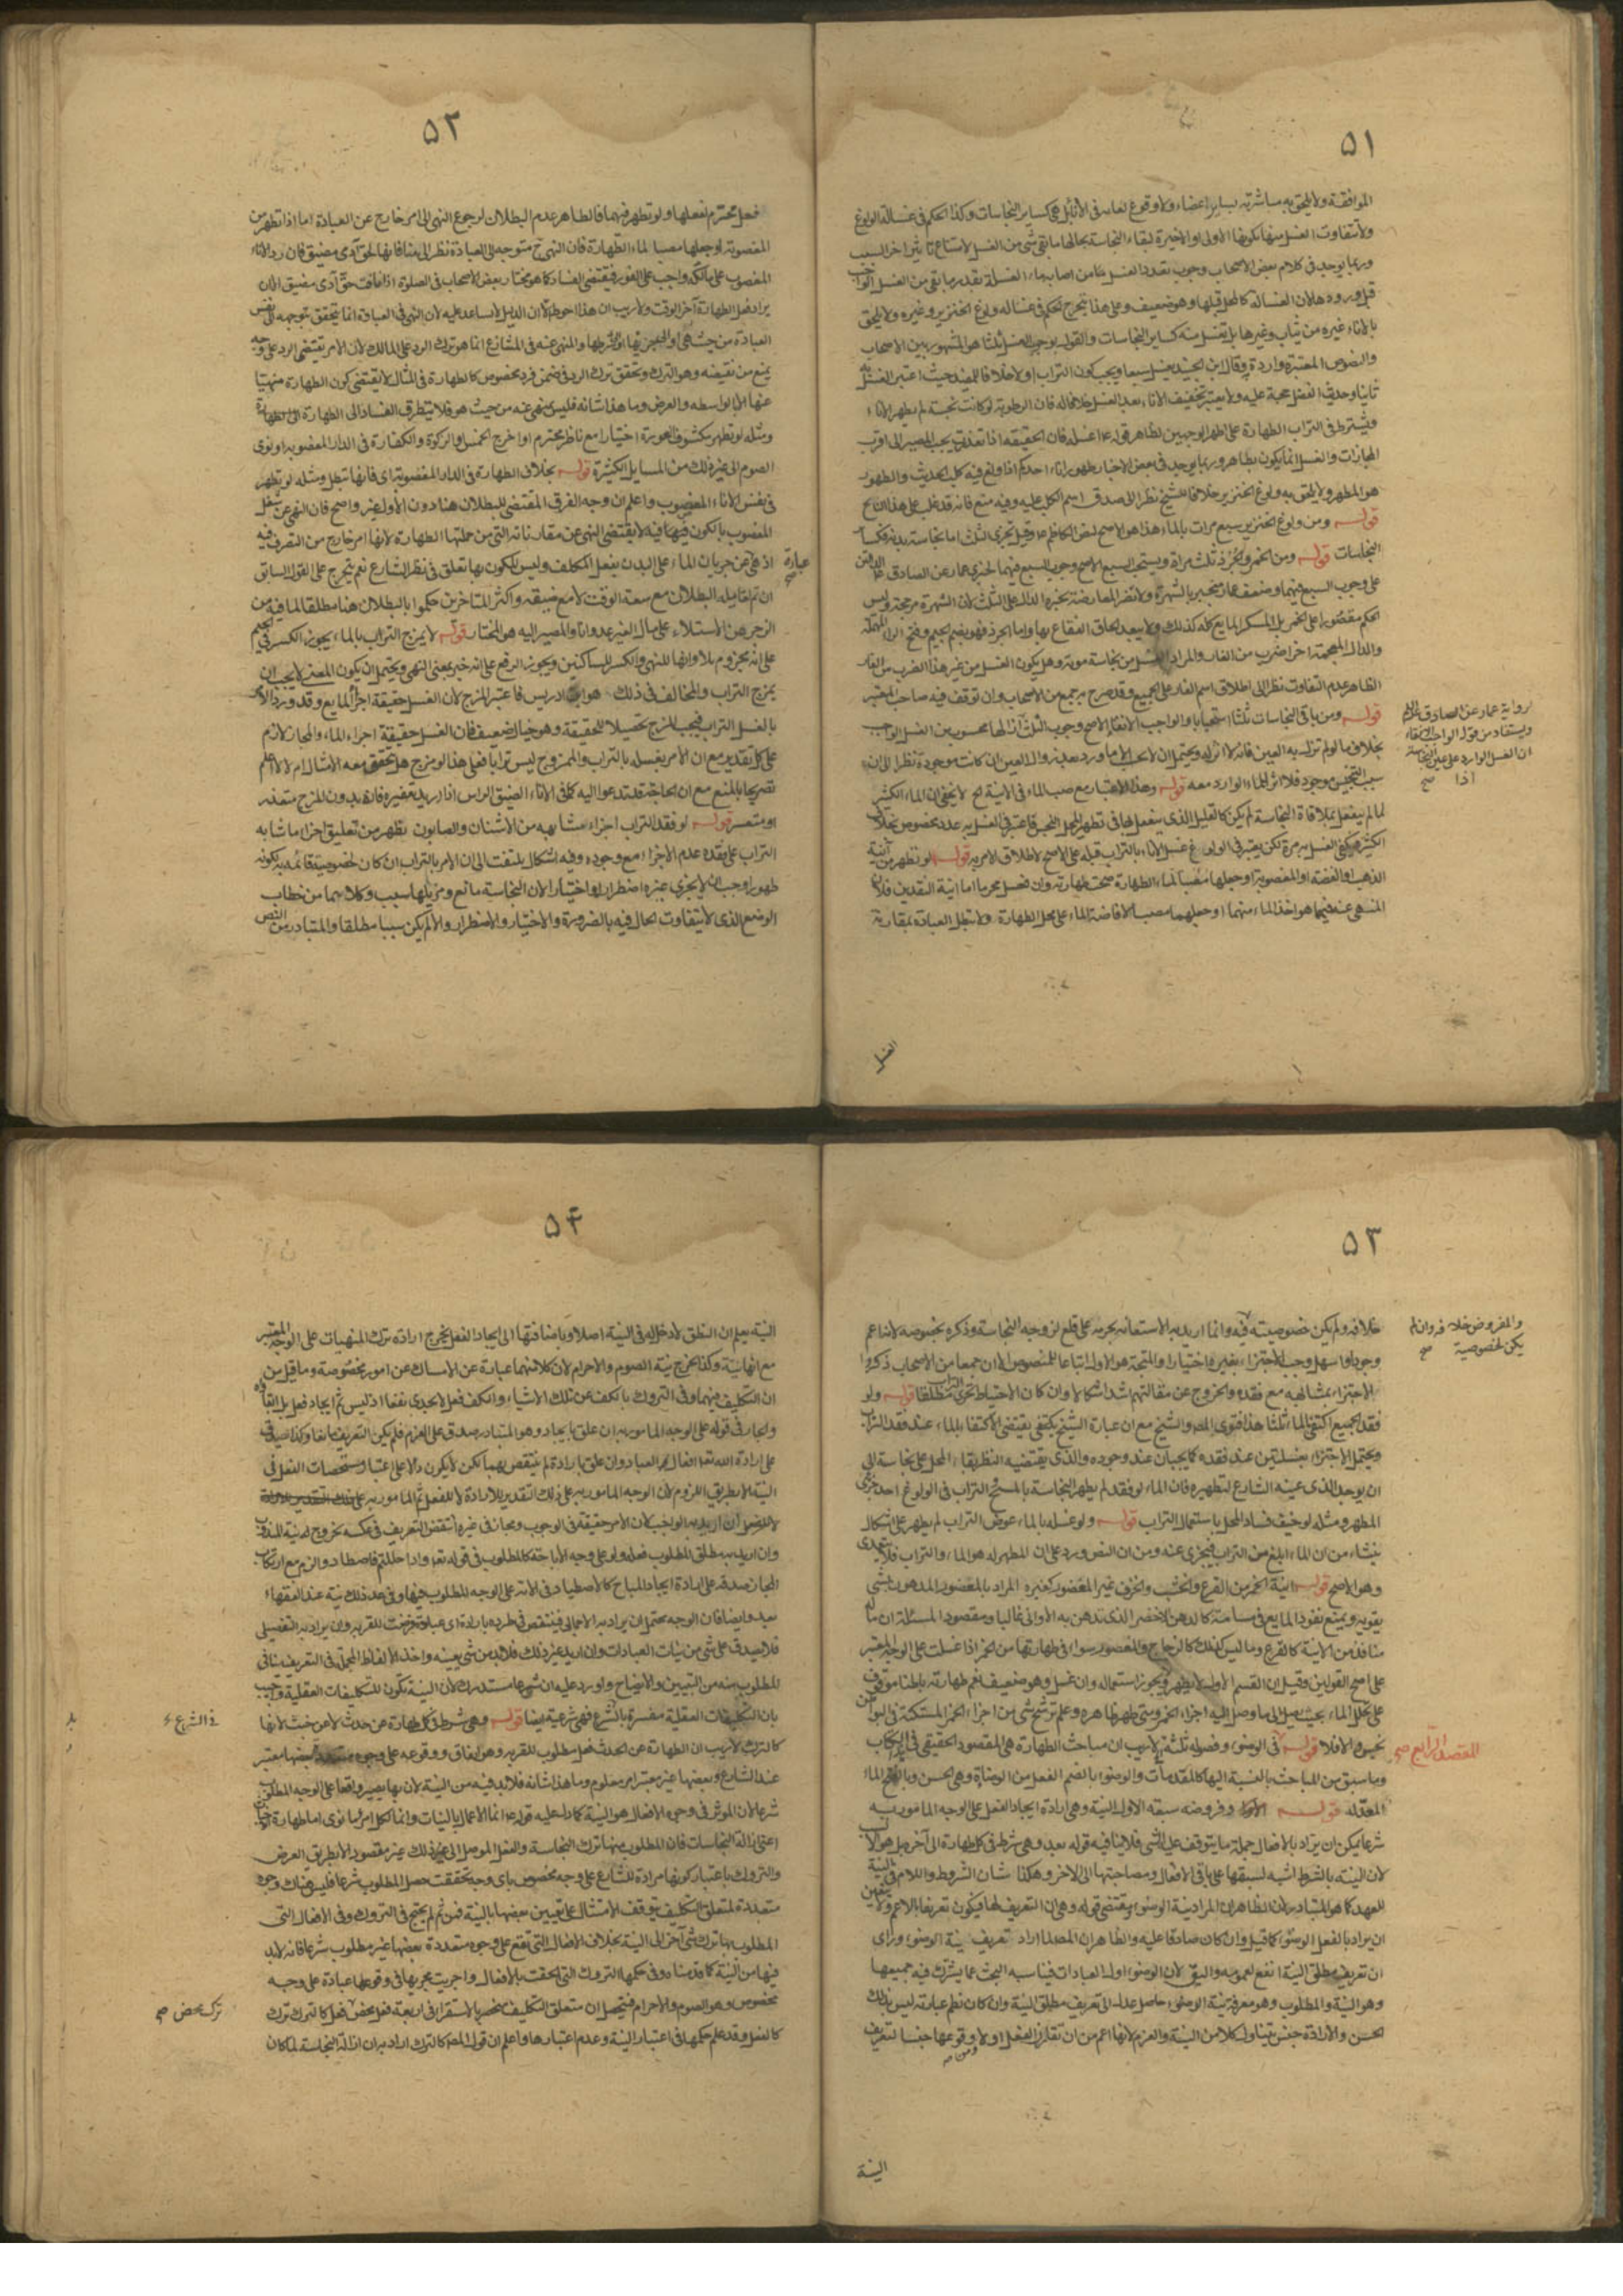 ٥١
الموافقة ولا يلحق به مباشرته لساير اعضاءه ولا وقوع لعابه في الاناء بل هي كساير النجاسات وكذا الحكم في غسالة الولوغ
ولا تتفاوت الغسل منها بكونها الاولى او الاخيرة لبقاء النجاسة بحالها ما بقي شي من الغسل لامتناع تاثير اخر السبب
وربما يوجد في كلام بعض الاصحاب وجوب تعدد الغسل مما اصابه ماء الغسلة بقدر ما بقي من الغسل الواجب
قبل ورودها لان الغسالة كالمحل قبلها وهو ضعيف وعلى هذا يتخرج الحكم في غسالة ولوغ الخنزير وغيره ولا يلحق
بالاناء غيره من ثياب وغيرها بل يغسل منه كساير النجاسات والقول بوجوب الغسل ثلثا هو المشهور بين الاصحاب
والنصوص المعتبرة واردة به وقال ابن الجنيد يغسل سبعا ويجب كون التراب اولا خلافا للمفيد حيث اعتبر الغسل به
ثانيا وحديث الفضل حجة عليه ولا يعتبر تجفيف الاناء بعد الغسل خلافا له فان الرطوبة لو كانت نجسة لم يطهر الاناء
ويشترط في التراب الطهارة على اظهر الوجهين لظاهر قوله ع اغسله فان الحقيقة اذا تعذرت يجب المصير الى اقرب
المجازات والغسل انما يكون بطاهر وربما يوجد في بعض الاخبار طهور اناء احدكم اذا ولغ فيه كلب الحديث والطهور
هو المطهر ولا يلحق به ولوغ الخنزير خلافا للشيخ نظرا الى صدق اسم الكلب عليه وفيه منع فانه قد غلب على هذا النابح
قوله ومن ولوغ الخنزير سبع مرات بالماء هذا هو الاصح لنص الكاظم ع وقيل تجزي الثلث اما نجاسة بدنه فكساير
النجاسات قوله ومن الخمر والجرذ ثلث مراة ويستحب السبع الاصح وجوب السبع فيهما لخبري عمار عن الصادق ع الدالين
على وجوب السبع فيهما وضعف عمار منجبر بالشهرة ولا تضر المعارضة بخبره الدال على الثلث لان الشهرة مرجحة وليس
الحكم مقصورا على الخمر بل المسكر المايع كله كذلك ولا يبعد الحاق الفقاع بها واما الجرذ فهو بضم الجيم وفتح الراء المهملة
والذال المعجمة اخرا ضرب من الفار والمراد الغسل من نجاسة موته وهل يكون الغسل من غير هذا الضرب من الفار
الظاهر عدم التفاوت نظرا الى اطلاق اسم الفار على الجميع وقد صرح به جمع من الاصحاب وان توقف فيه صاحب المعتبر
قوله ومن باقي النجاسات ثلثا استحبابا والواجب الانقاء الاصح وجوب الثلث
بخلاف ما لو لم تزل به العين فانه لا اثر له ويحتمل ان لا يحسب الا ما ورد بعد زوال العين ان كانت موجودة نظرا الى ان
سبب التنجيس موجود فلا اثر للماء الوارد معه قوله وهذا الاعتبار مع صب الماء في الانية الخ لا يخفى ان الماء الكثير
لما لم ينفعل بملاقاة النجاسة لم يكن كالقليل الذي ينفعل بها في تطهير المحل النجس فاعتبر في الغسل به عدد بخصوص بخلاف
الكثير فيكفي الغسل به مرة لكن يعتبر في الولوغ غسل الاناء بالتراب قبله على الاصح لاطلاق الامر به قوله لو تطهر من انية
الذهب او الفضة او المغصوبة او جعلها مصبا لماء الطهارة صحت طهارته وان فعل محرما اما انية النقدين فلان
المنهي عنه فيهما هو اخذ الماء منهما او جعلهما مصبا لافاضة الماء على محل الطهارة ولا تبطل العبادة بمقارنة
لرواية عمار عن الصادق عليه السلام
ويستفاد من قوله الواجب الانقاء
ان الغسل الوارد على عين النجاسة
اذا صح
الغسل
٥٢
فعل محترم لفعلها ولو تطهر فيهما فالظاهر عدم البطلان لرجوع النهي الى امر خارج عن العبادة اما اذا تطهر من
المغصوبة او جعلها مصبا لماء الطهارة فان النهي ح متوجه الى العبادة نظرا الى منافاتها لحق آدمي مضيق فان رد الاناء
المغصوب على مالكه واجب على الفور فيقتضي الفساد كما هو مختار بعض الاصحاب في الصلوة اذا نافت حق آدمي مضيق الا ان
يراد فعل الطهارة آخر الوقت ولا ريب ان هذا احوط الا ان الدليل لا يساعد عليه لان النهي في العبادة انما يتحقق بتوجهه الى نفس
العبادة من حيث هي او الى جزئها او شرطها والمنهي عنه في المتنازع انما هو ترك الرد على المالك لان الامر يقتضي الرد على وجه
يمنع من نقيضه وهو الترك وتحقق ترك الرد في ضمن فرد مخصوص كالطهارة في المثال لا يقتضي كون الطهارة منهيا
عنها الا بالواسطه والعرض وما هذا شانه فليس بمنهي عنه من حيث هو فلا يتطرق الفساد الى الطهارة
ومثله لو تطهر مكشوف العورة اختيارا مع ناظر محترم او اخرج الخمس او الزكوة والكفارة في الدار المغصوبه او نوى
الصوم الى غير ذلك من المسايل الكثيرة قوله بخلاف الطهارة في الدار المغصوبة اي فانها تبطل ومثله لو تطهر
في نفس الاناء المغصوب واعلم ان وجه الفرق المقتضي للبطلان هنا دون الاول غير واضح فان النهي عن شغل
المغصوب بالكون فيها فيه لا يقتضي النهي عن مقارناته التي من جملتها الطهارة لانها امر خارج من التصرف فيه
اذ هي عن جريان الماء على البدن بفعل المكلف وليس للكون بها تعلق في نظر الشارع نعم يتخرج على القول السابق
ان تم القايله البطلان مع سعة الوقت لا مع ضيقه واكثر المتاخرين حكموا بالبطلان هنا مطلقا لما فيه من
الزجر عن الاستلاء على مال الغير عدوانا والمصير اليه هو المختار قوله لا يمزج التراب بالماء يجوز الكسر في الجيم
على انه مجزوم بلا وانها للنهي والكسر للساكنين ويجوز الرفع على انه خبر بمعنى النهي ويحتمل ان يكون المعنى لا يجب ان
يمزج التراب والمخالف في ذلك هو ابن ادريس فاعتبر المزج لان الغسل حقيقة اجراء المايع وقد ورد الامر
بالغسل بالتراب فيجب المزج تحصيلا للحقيقة وهو خيال ضعيف فان الغسل حقيقة اجراء الماء والمجاز لازم
على كل تقدير مع ان الامر بغسله بالتراب والممزوج ليس ترابا فعلى هذا لو مزج هل يتحقق معه الامتثال ام لا لا اعلم
تصريحا بالمنع مع ان الحاجة قد تدعوا اليه كما في الاناء الضيق الراس اذا اريد تعفيره فانه بدون المزج متعذر
او متعسر قوله لو فقد التراب اجزاء مشابهه من الاشنان والصابون يظهر من تعليق اجزاء ما شابه
التراب على فقده عدم الاجزاء مع وجوده وفيه اشكال يلتفت الى ان الامر بالتراب ان كان لخصوصية قائمه به بكونه
طهورا وجب ان لا يجزي غيره اضطرارا واختيارا لان النجاسة مانع ومزيلها سبب وكلاهما من خطاب
الوضع الذي لا يتفاوت الحال فيه بالضرورة والاختيار والاضطرار والا لم يكن سببا مطلقا والمتبادر من النص
عبارة صح
٥٣
خلافه ولم يكن خصوصيته فيه وانما اريد به الاستعانه بجرمه على قلع لزوجه النجاسة وذكره بخصوصه لانه اعم
وجودا واسهل وجب الاجتزاء بغيره اختيارا والمتجه هو الاول اتباعا للمنصوص الا ان جمعا من الاصحاب ذكروا
الاجتزاء بمشابهه مع فقده والخروج عن مقالتهم اشد اشكالا وان كان الاحتياط تحري التراب مطلقا قوله ولو
فقد الجميع اكتفى بالماء ثلثا هذا فتوى المصه والشيخ مع ان عبارة الشيخ يكتفي يقتضي الاكتفاء بالماء عند فقد التراب
ويحتمل الاجتزاء بغسلتين عند فقده كما يجبان عند وجوده والذي يقتضيه النظر بقاء المحل على نجاسة الى
ان يوجد الذي عينه الشارع لتطهيره فان الماء لو فقد لم يطهر النجاسة بالمسح والتراب في الولوغ احد جزئي
المطهر ومثله لو خيف فساد المحل باستعمال التراب قوله ولو غسله بالماء عوض التراب لم يطهر على اشكال
ينشاء من ان الماء ابلغ من التراب فيجزي عنه ومن ان النص ورد على ان المطهر له هو الماء والتراب فلا يتعدى
وهو الاصح قوله انية الخمر من القرع والخشب والخزف غير المغضور كغيره المراد بالمغضور المدهون بشي
يقويه ويمنع نفوذ المايع في مسامه كالدهن الاخضر الذي تدهن به الاواني غالبا ومقصود المسئلة ان ما له
منافذ من الانية كالقرع وما ليس كذلك كالزجاج والمغضور سواء في طهارتها من الخمر اذا غسلت على الوجه المعتبر
على اصح القولين وقيل ان القسم الاول لا يطهر ولا يجوز استعماله وان غسل وهو ضعيف نعم طهارته باطنا موقوف
على تخلل الماء بحيث يصل الى ما وصل اليه اجزاء الخمر ومتى طهر ظاهره وعلم ترشح شي من اجزاء الخمر المستكنة في البواطن
نجس والا فلا قوله في الوضوء وفصوله ثلثة لا ريب ان مباحث الطهارة هي المقصود الحقيقي في الكتاب
وما سبق من المباحث بالنسبة اليها كالمقدمات والوضوء بالضم الفعل من الوضاءة وهي الحسن وبالفتح الماء
المعد له قوله الاول وفروضه سبعة الاول النية وهي ارادة ايجاد الفعل على الوجه المامور به
شرعا يمكن ان يراد بالافعال جملة ما يتوقف عليه الشي فلا ينافيه قوله بعد وهي شرط في كل طهارة الى آخره بل هو الانسب
لان النية بالشرط اشبه لسبقها على باقي الافعال ومصاحبتها الى الاخر وهكذا شان الشروط واللام في النية
للعهد كما هو المتبادر لان الظاهر ان المراد نية الوضوء ويقتضي قوله وهي ان التعريف لها فيكون تعريفا بالاعم ولا يتعين
ان يراد بالفعل الوضوء كما قيل وان كان صادقا عليه والظاهر ان المصه لما اراد تعريف نية الوضوء وراى
ان تعريف مطلق النية انفع لعمومه واليق لان الوضوء اول العبادات فيناسبه البحث عما يشترك فيه جميعها
وهو النية والمطلوب وهو معرفة نية الوضوء حاصل عدل الى تعريف مطلق النية وان كان نظم عبارته ليس بذلك
الحسن والارادة جنس يتناول كلا من النية والعزم لانها اعم من ان تقارن الفعل او لا ومن وقوعها جنسا لتعريف
والمفروض خلافه وان لم
يكن لخصوصية صح
المقصد الرابع صح
النية
٥٤
النية يعلم ان النطق لا دخل له في النية اصلا وباضافتها الى ايجاد الفعل يخرج ارادة ترك المنهيات على الوجه المعتبر
مع انها نية وكذا يخرج نية الصوم والاحرام لان كلا منهما عبارة عن الامساك عن امور مخصوصة وما قيل من
ان التكليف فيهما وفي التروك بالكف عن تلك الاشياء والكف فعل لا يجدي نفعا اذ ليس ثم ايجاد فعل بل ابقاؤه
والجار في قوله على الوجه المامور به ان علق بايجاد وهو المتبادر صدق على العزم فلم يكن التعريف مانعا وكذا يصدق
على ارادة الله تعالى افعال العباد وان علق بارادة لم ينتقض بهما لكن لا يكون دالا على اعتبار مشخصات الفعل في
النية الا بطريق اللزوم لان الوجه المامور به على ذلك التقدير للارادة لا للفعل ثم المامور به
ان اريد به الواجب لان الامر حقيقة في الوجوب ومجاز في غيره انتقض التعريف في عكسه بخروج نية المندوب
وان اريد به مطلق المطلوب فعله ولو على وجه الاباحة كالمطلوب في قوله تعالى واذا حللتم فاصطادوا لزم مع ارتكاب
المجاز صدقه على ارادة ايجاد المباح كالاصطياد في الآية على الوجه المطلوب فيها وفي عد ذلك نية عند الفقهاء
بعد وايضا فان الوجه يحتمل ان يراد به الاجمالي فينتقض في طرده بارادة اي عبادة فرضت للقربه وان يراد به التفصيلي
فلا يصدق على شي من نيات العبادات وان اريد غير ذلك فلا بد من شي يعينه واخذ الالفاظ المجملة في التعريف ينافي
المطلوب منه من التبيين والايضاح واورد عليه ان شرعا مستدرك لان النية تكون للتكليفات العقلية واجيب
بان التكليفات العقلية مفسرة بالشرع فهي شرعية ايضا قوله وهي شرط في كل طهارة عن حدث لا عن خبث لانها
كالترك لا ريب ان الطهارة عن الحدث فعل مطلوب للقربه وهو اتفاق ووقوعه على وجوه متعددة بعضها معتبر
عند الشارع وبعضها غير معتبر امر معلوم وما هذا شانه فلا بد فيه من النية لان بها يصير واقعا على الوجه المطلوب
شرعا لان الموثر في وجوه الافعال هو النية كما دل عليه قوله ع انما الاعمال بالنيات وانما لكل امرئ ما نوى اما طهارة الخبث
اعني ازالة النجاسات فان المطلوب منها ترك النجاسة والفعل الموصل الى ذلك غير مقصود الا بطريق العرض
والتروك باعتبار كونها مرادة للشارع على وجه مخصوص باي وجه تحققت حصل المطلوب شرعا فليس هناك وجوه
متعددة لمتعلق التكليف يتوقف الامتثال على تعيين بعضها بالنية فمن ثم لم يحتج في التروك وفي الافعال التي
المطلوب بها ترك شي آخر الى النية بخلاف الافعال التي تقع على وجوه متعددة بعضها غير مطلوب شرعا فانه لا بد
فيها من النية كما قدمناه وفي حكمها التروك التي الحقت بالافعال واجريت مجريها في وقوعها عبادة على وجه
مخصوص وهو الصوم والاحرام فتحصل ان متعلق التكليف منحصر بالاستقراء في اربعة فعل محض فعل كالترك ترك
كالفعل وقد علم حكمها في اعتبار النية وعدم اعتبارها واعلم ان قول المصه كالترك اراد به ان ازالة النجاسة لما كان
في الشرع
ترك محض صح